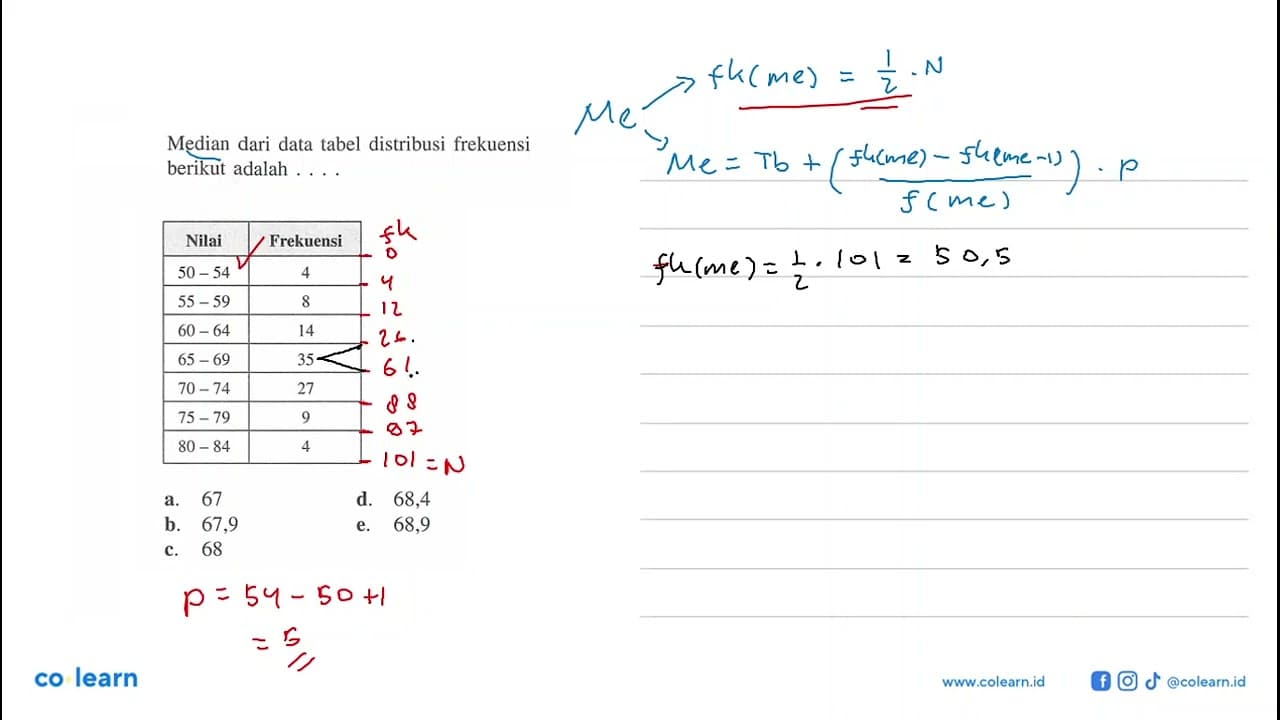 Median dari data tabel distribusi frekuensi
berikut adalah . . . .
Nilai Frekuensi fk
0
50 – 54 4
4
55 – 59 8
12
60 – 64 14
26.
65 – 69 35
61..
70 – 74 27
88
75 – 79 9
87
80 – 84 4
101 = N
a. 67 d. 68,4
b. 67,9 e. 68,9
c. 68
p = 54 - 50 + 1
= 5
Me
fk(me) = 1/2 . N
Me = Tb + (fk(me) - fk(me-1) / f(me)) . p
fk(me) = 1/2 . 101 = 50,5
co learn
www.colearn.id
@colearn.id